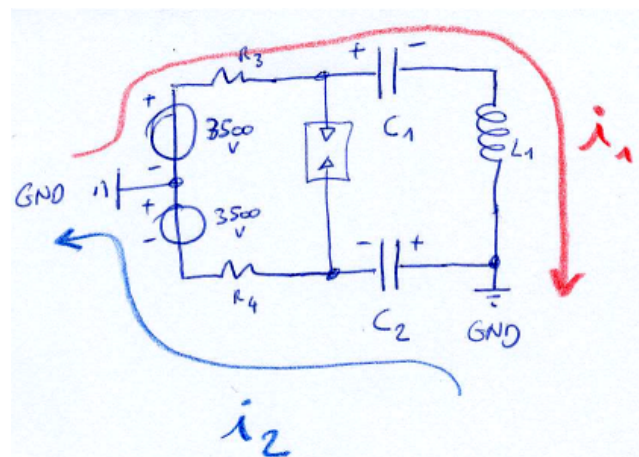 R3
+ -
C1
+
3500
V
-
L1
i1
GND
+
3500
V
-
- +
R4
C2
GND
i2